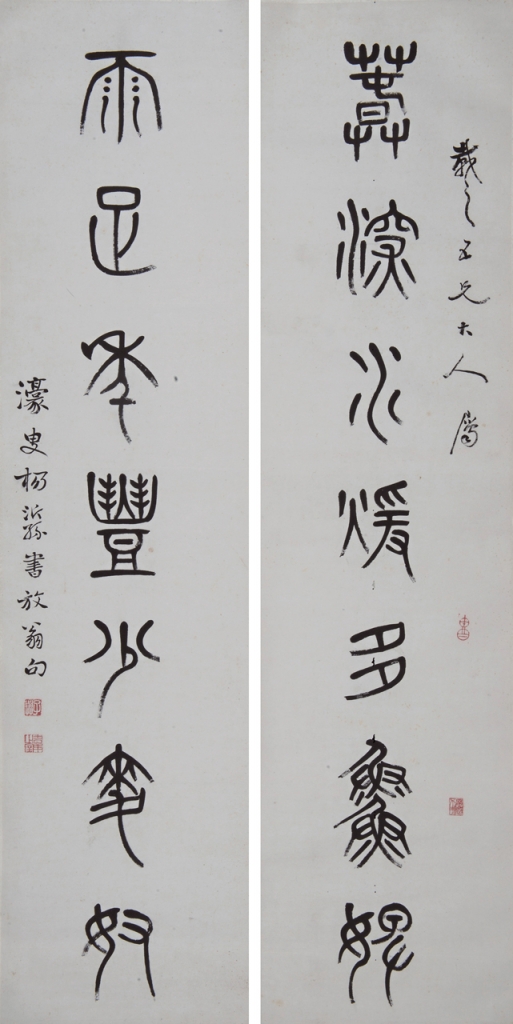 載之五兄大人屬
春深水煖多魚婢
雨足年豐少麥奴
濠叟楊沂孫書放翁句